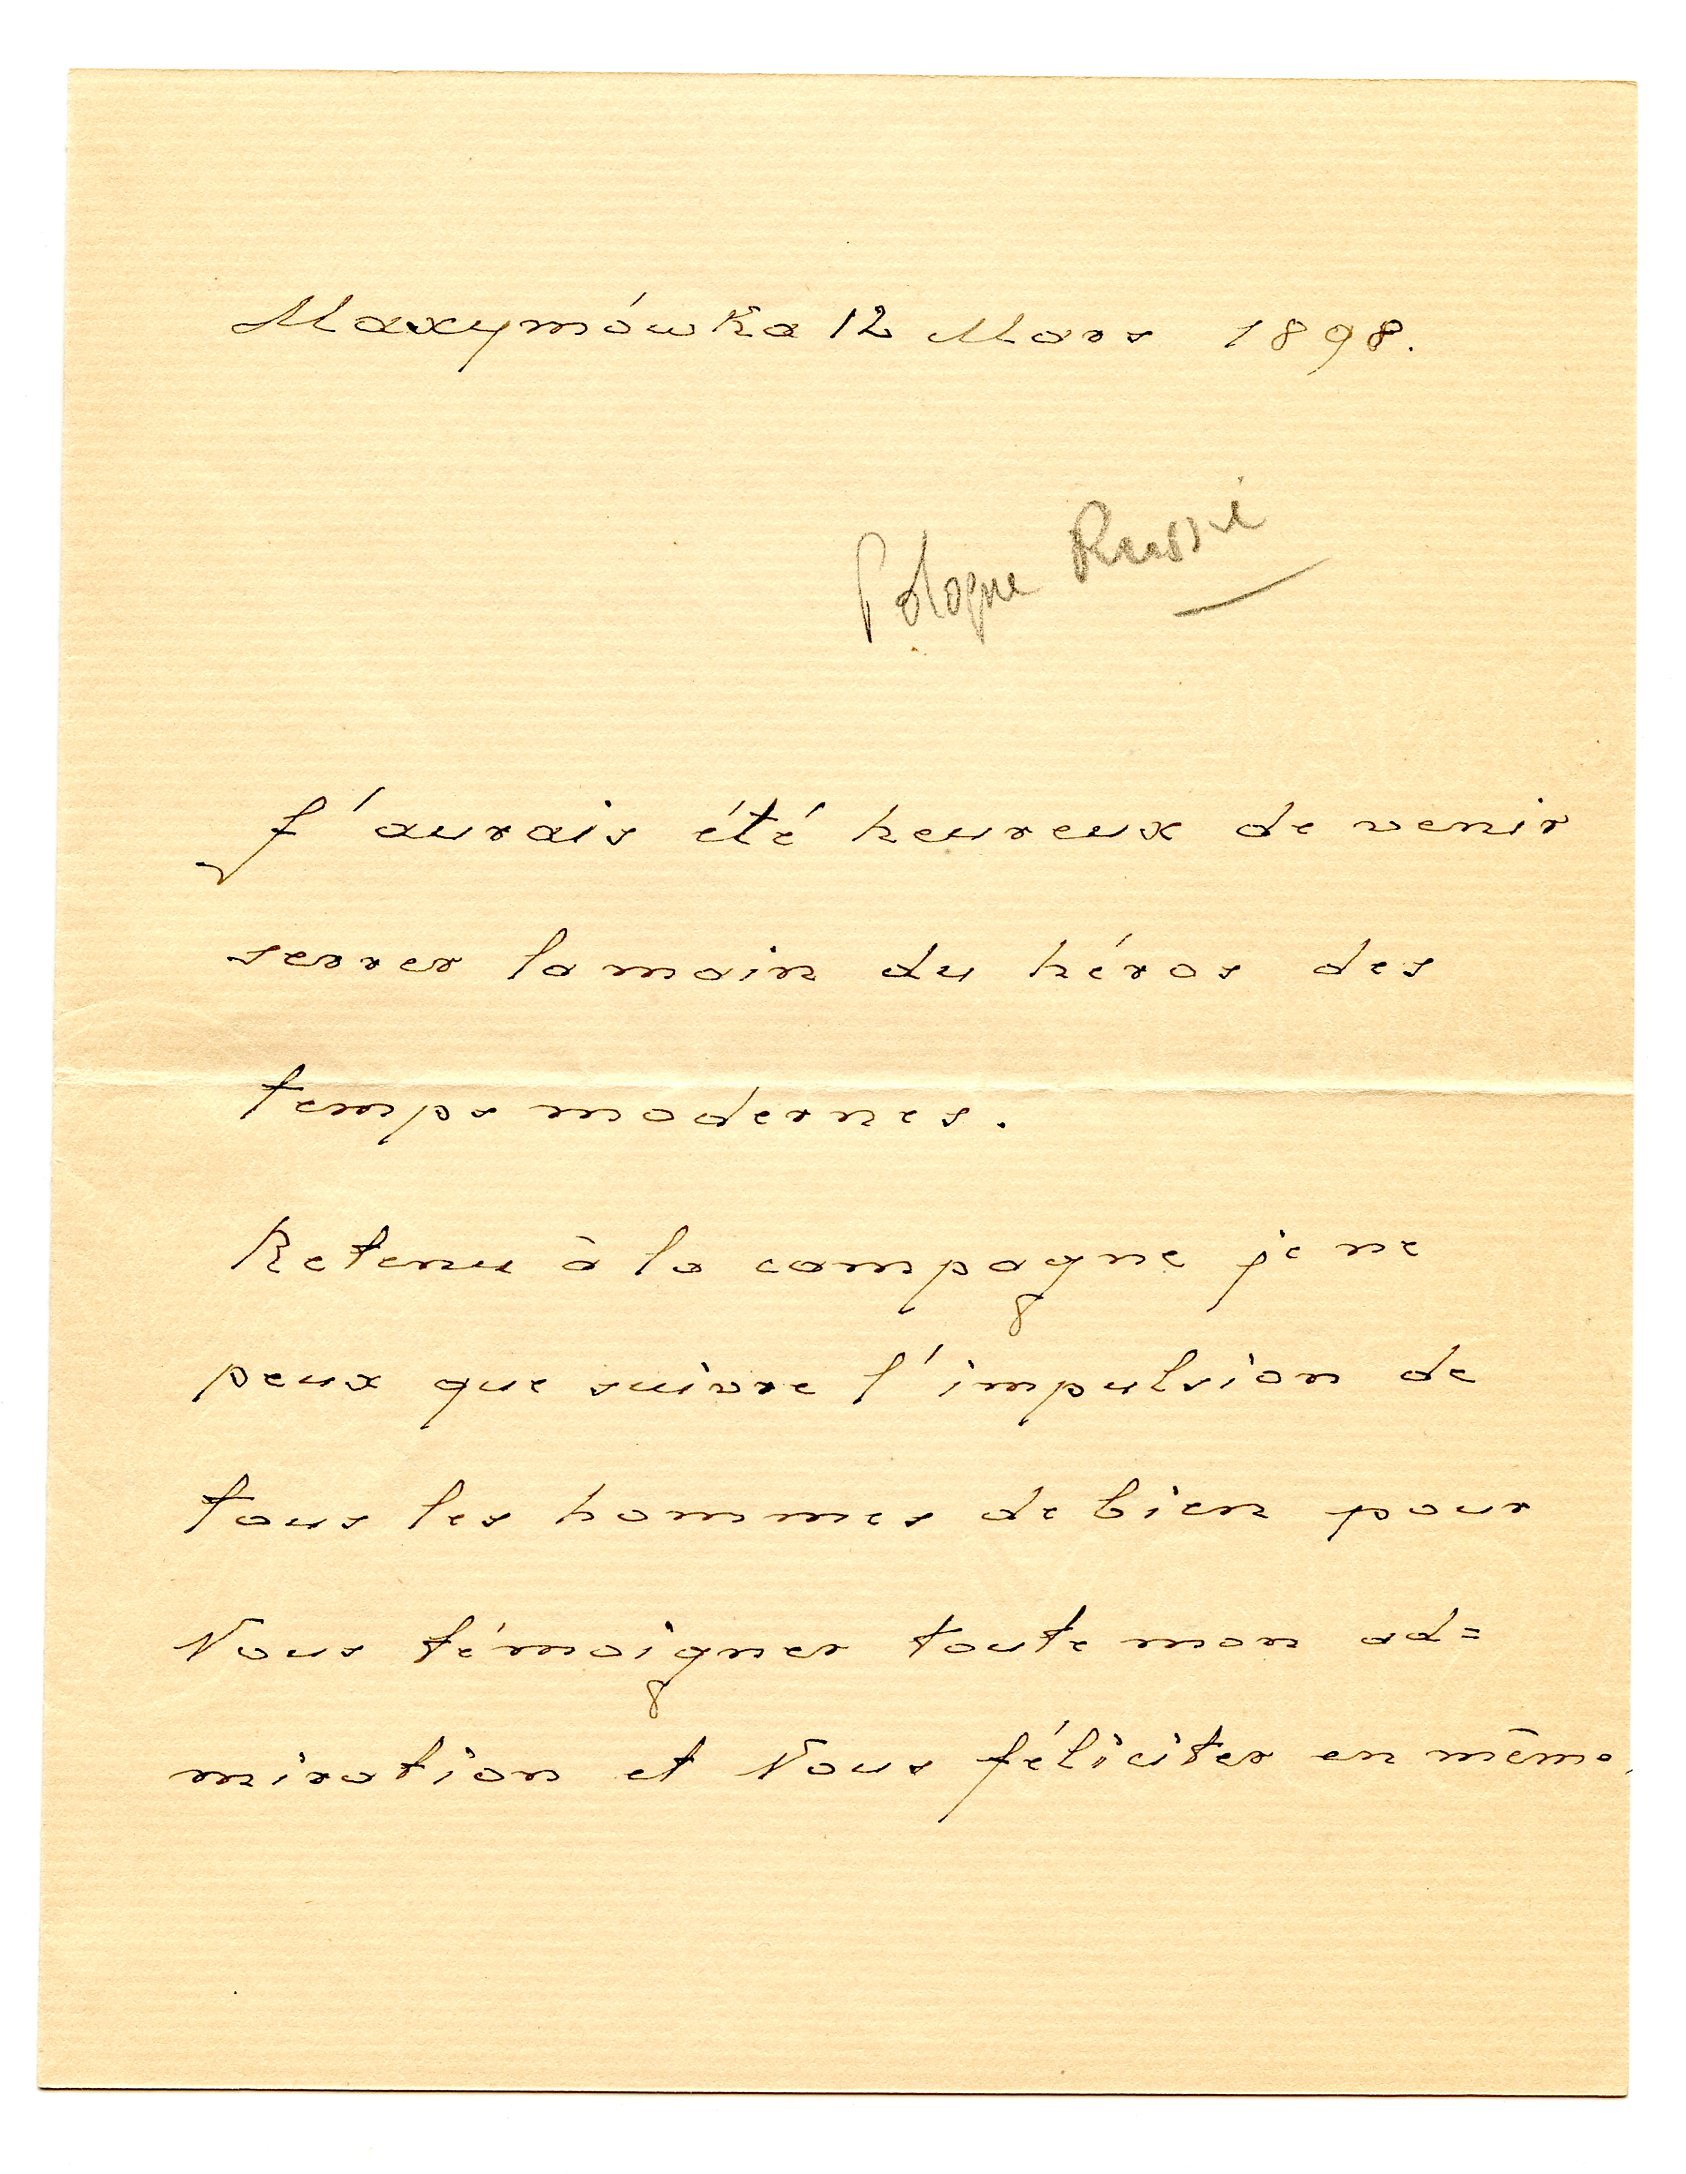 Maxymówka 12 Mars 1898.
Pologne Russie
J'aurais été heureux de venir
serrer la main du héros des
temps modernes.
Retenu à la campagne je ne
peux que suivre l'impulsion de
tous les hommes de bien pour
Vous témoigner toute mon ad=
miration et Vous féliciter en même